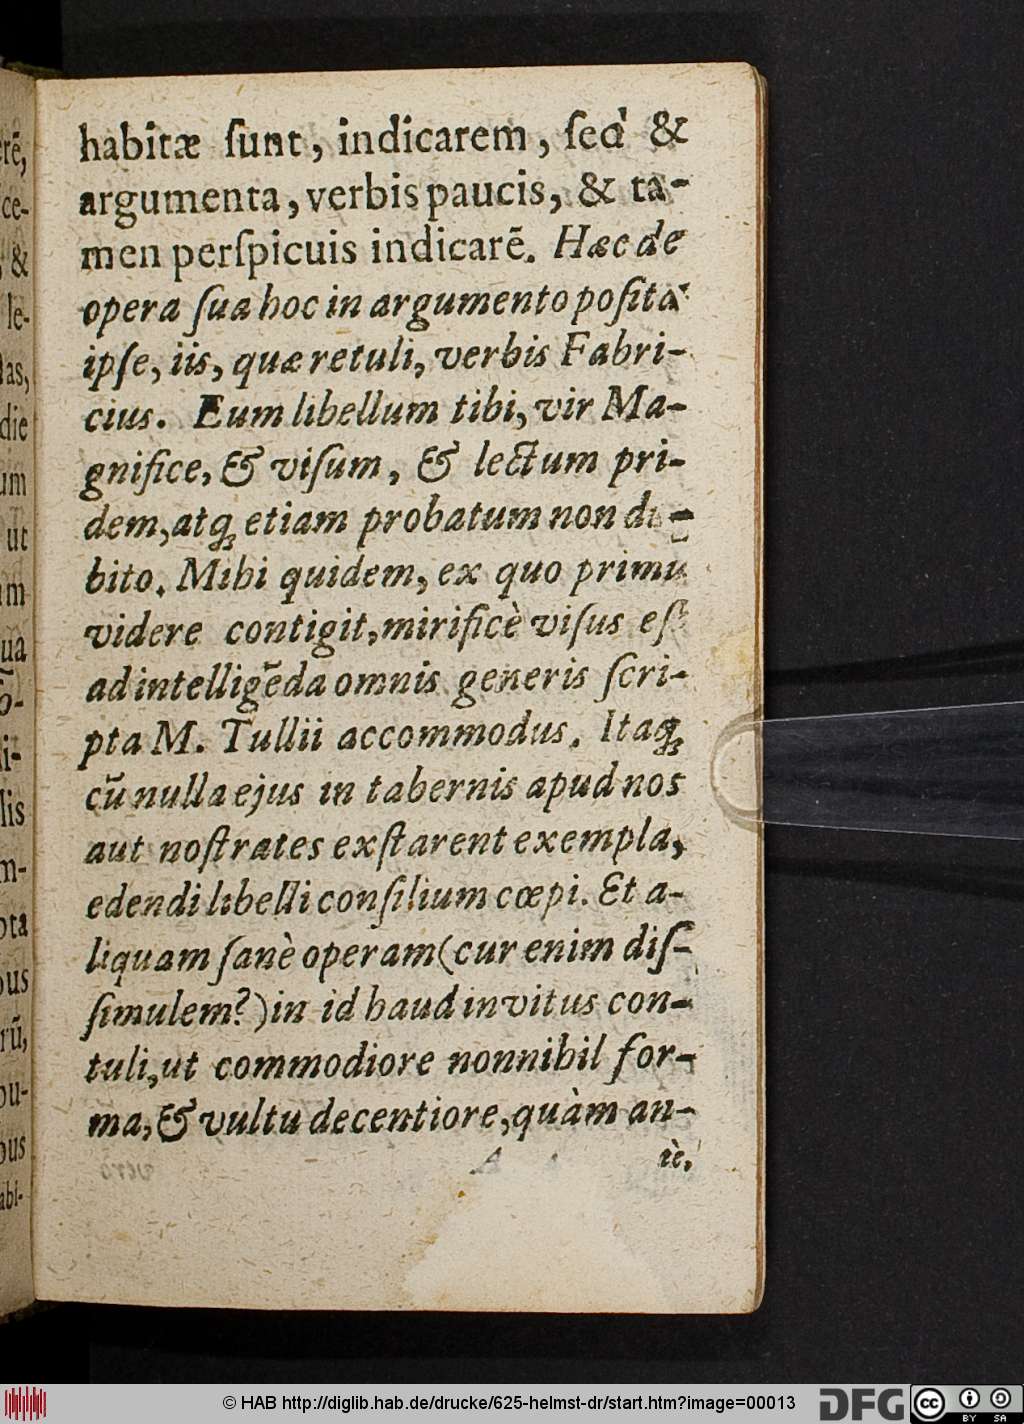 habitæ ſunt, indicarem, ſed &
argumenta, verbis paucis, & ta-
men perſpicuis indicarē. Hæc de
opera ſua hoc in argumento poſita
ipſe, iis, quæ retuli, verbis Fabri-
cius. Eum libellum tibi, vir Ma-
gnifice, & viſum, & lectum pri-
dem, atq́; etiam probatum non du-
bito. Mihi quidem, ex quo primū
videre contigit, mirificè viſus eſt
ad intelligēda omnis generis ſcri-
pta M. Tullii accommodus. Itaq́;
cū nulla ejus in tabernis apud nos
aut noſtrates exſtarent exempla,
edendi libelli conſilium cœpi. Et a-
liquam ſanè operam (cur enim diſ-
ſimulem?) in id haud invitus con-
tuli, ut commodiore nonnihil for-
ma, & vultu decentiore, quàm an-
tè,
rē,
ce-
, &
le-
las,
die
um
ut
ua
i-
lis
m-
pta
bus
rū,
bus
abi-
© HAB http://diglib.hab.de/drucke/625-helmst-dr/start.htm?image=00013
DFG
cc
BY SA